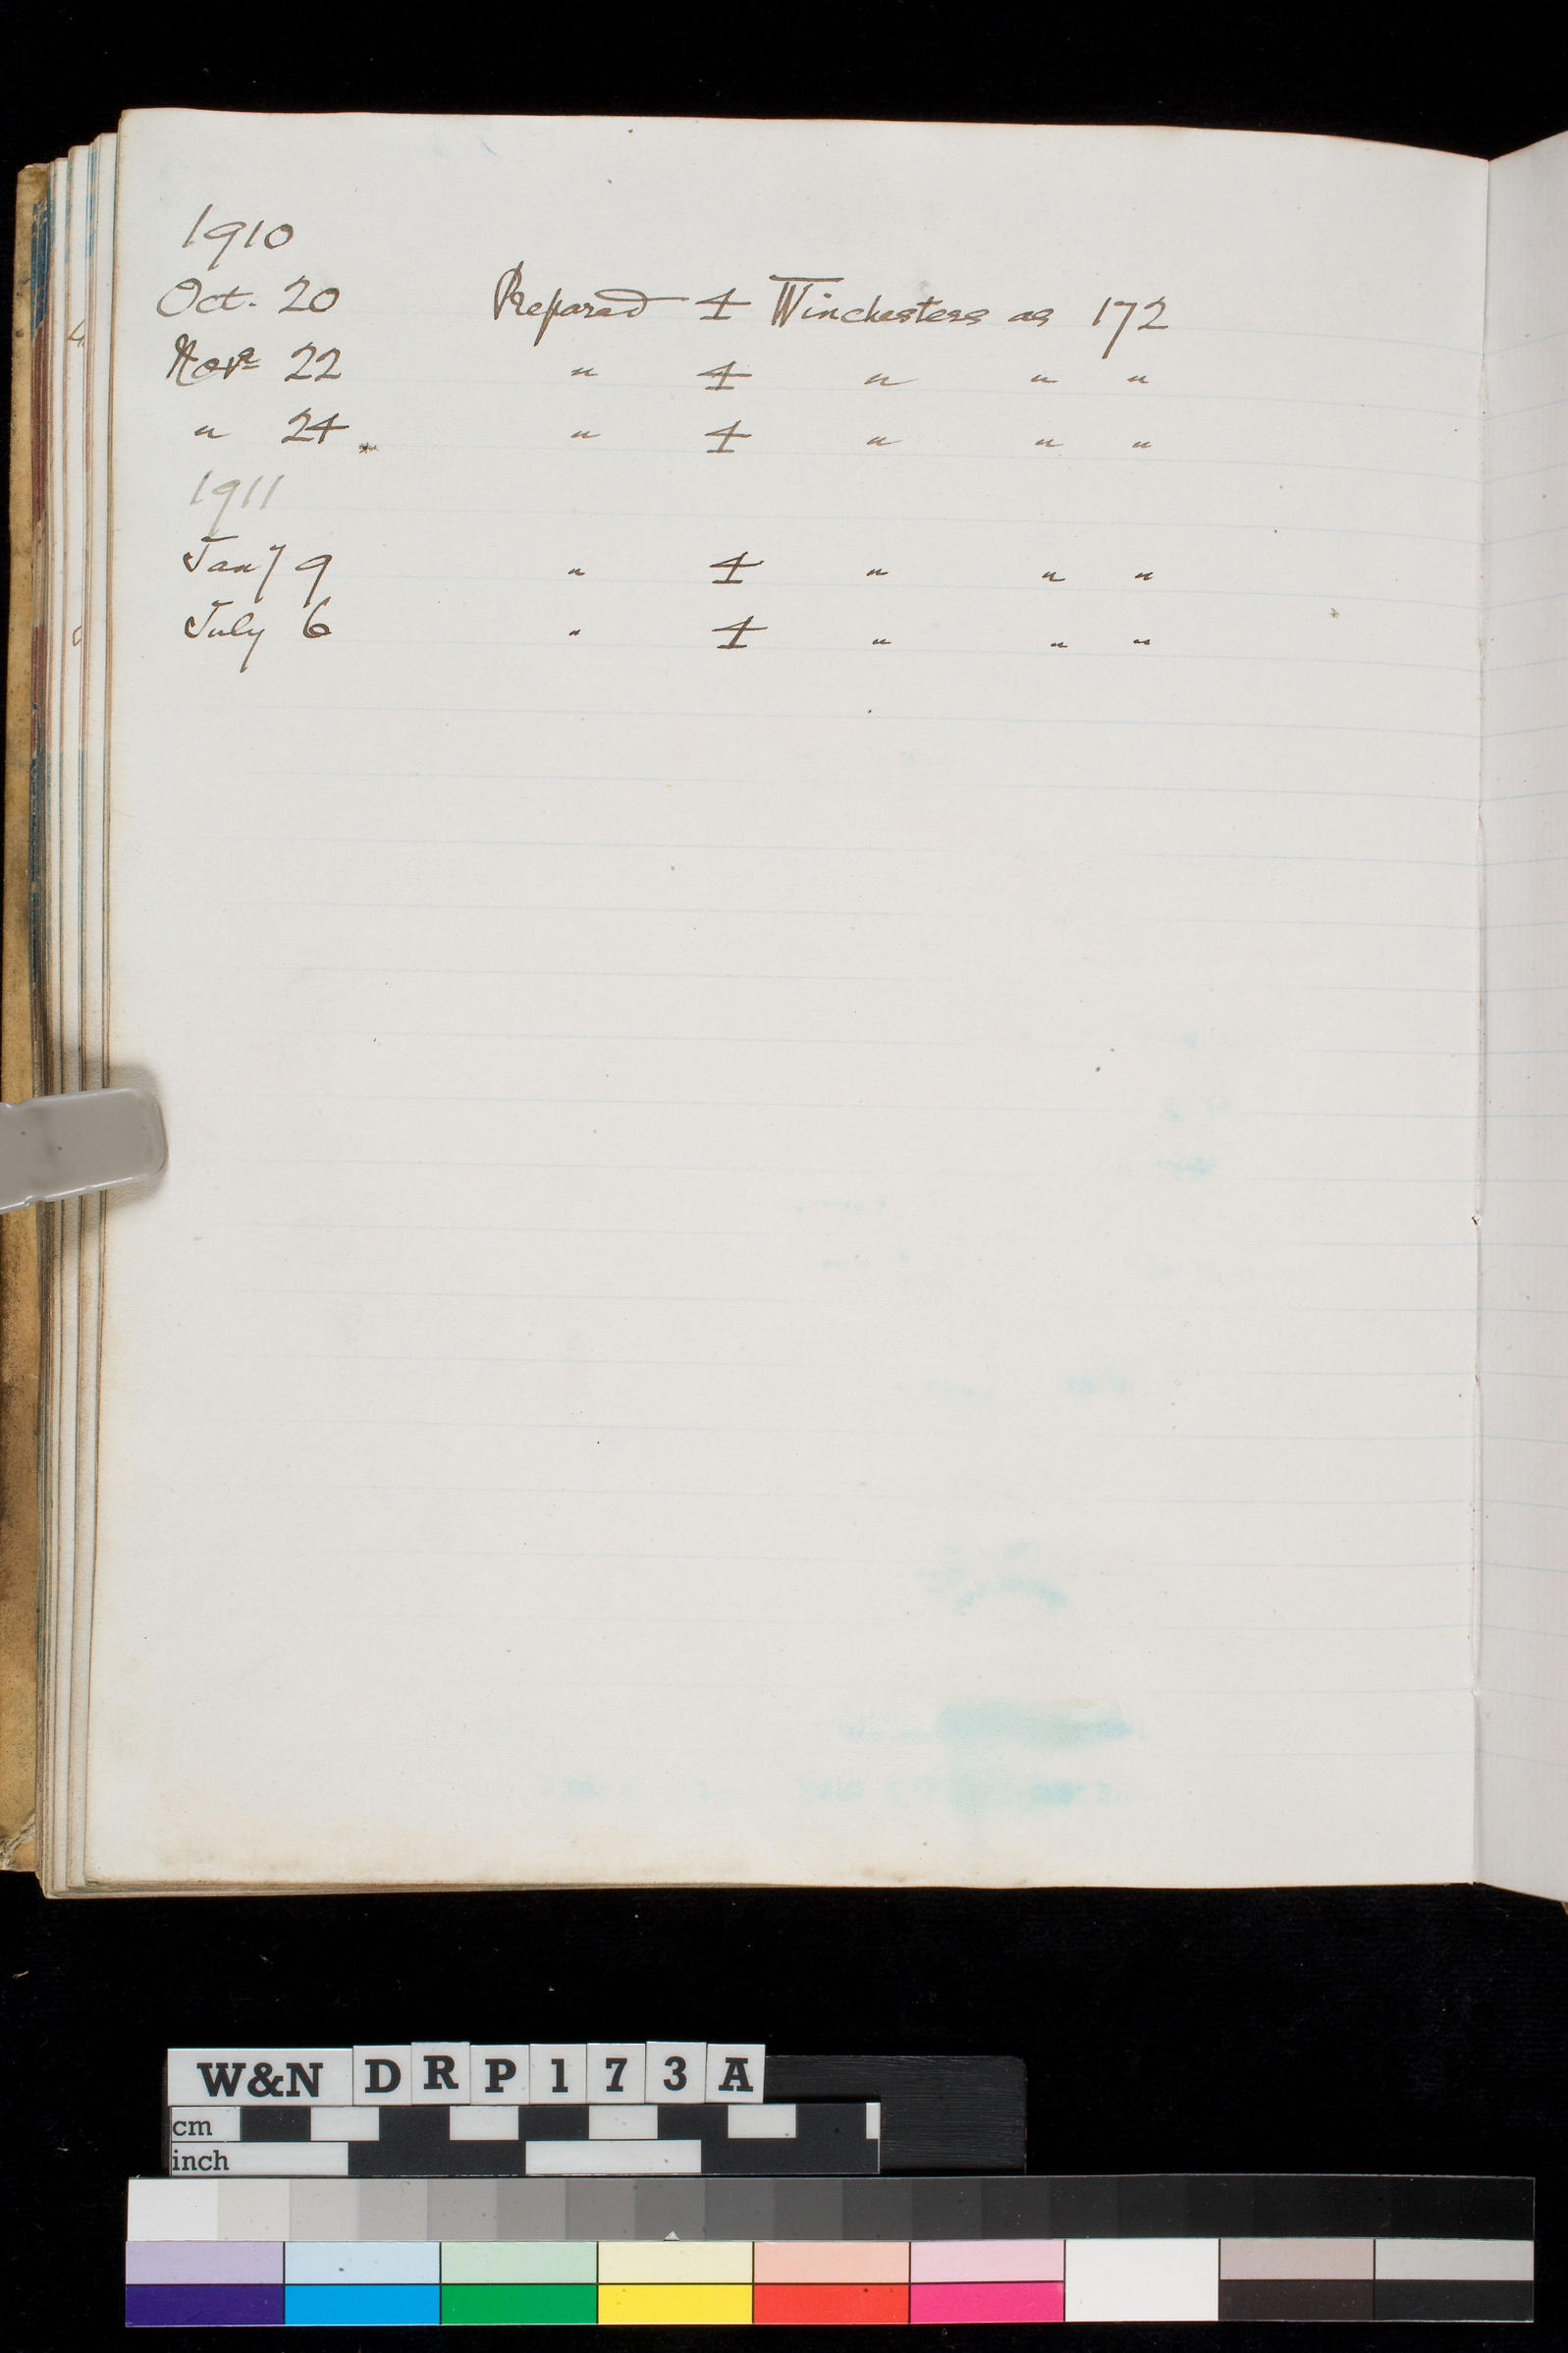 1910
Oct. 20 Prepared 4 Winchesters as 172
Novr 22 " 4 " " "
" 24 " 4 " " "
1911
Jany 9 " 4 " " "
July 6 " 4 " " "
W&N DRP173A
cm
inch